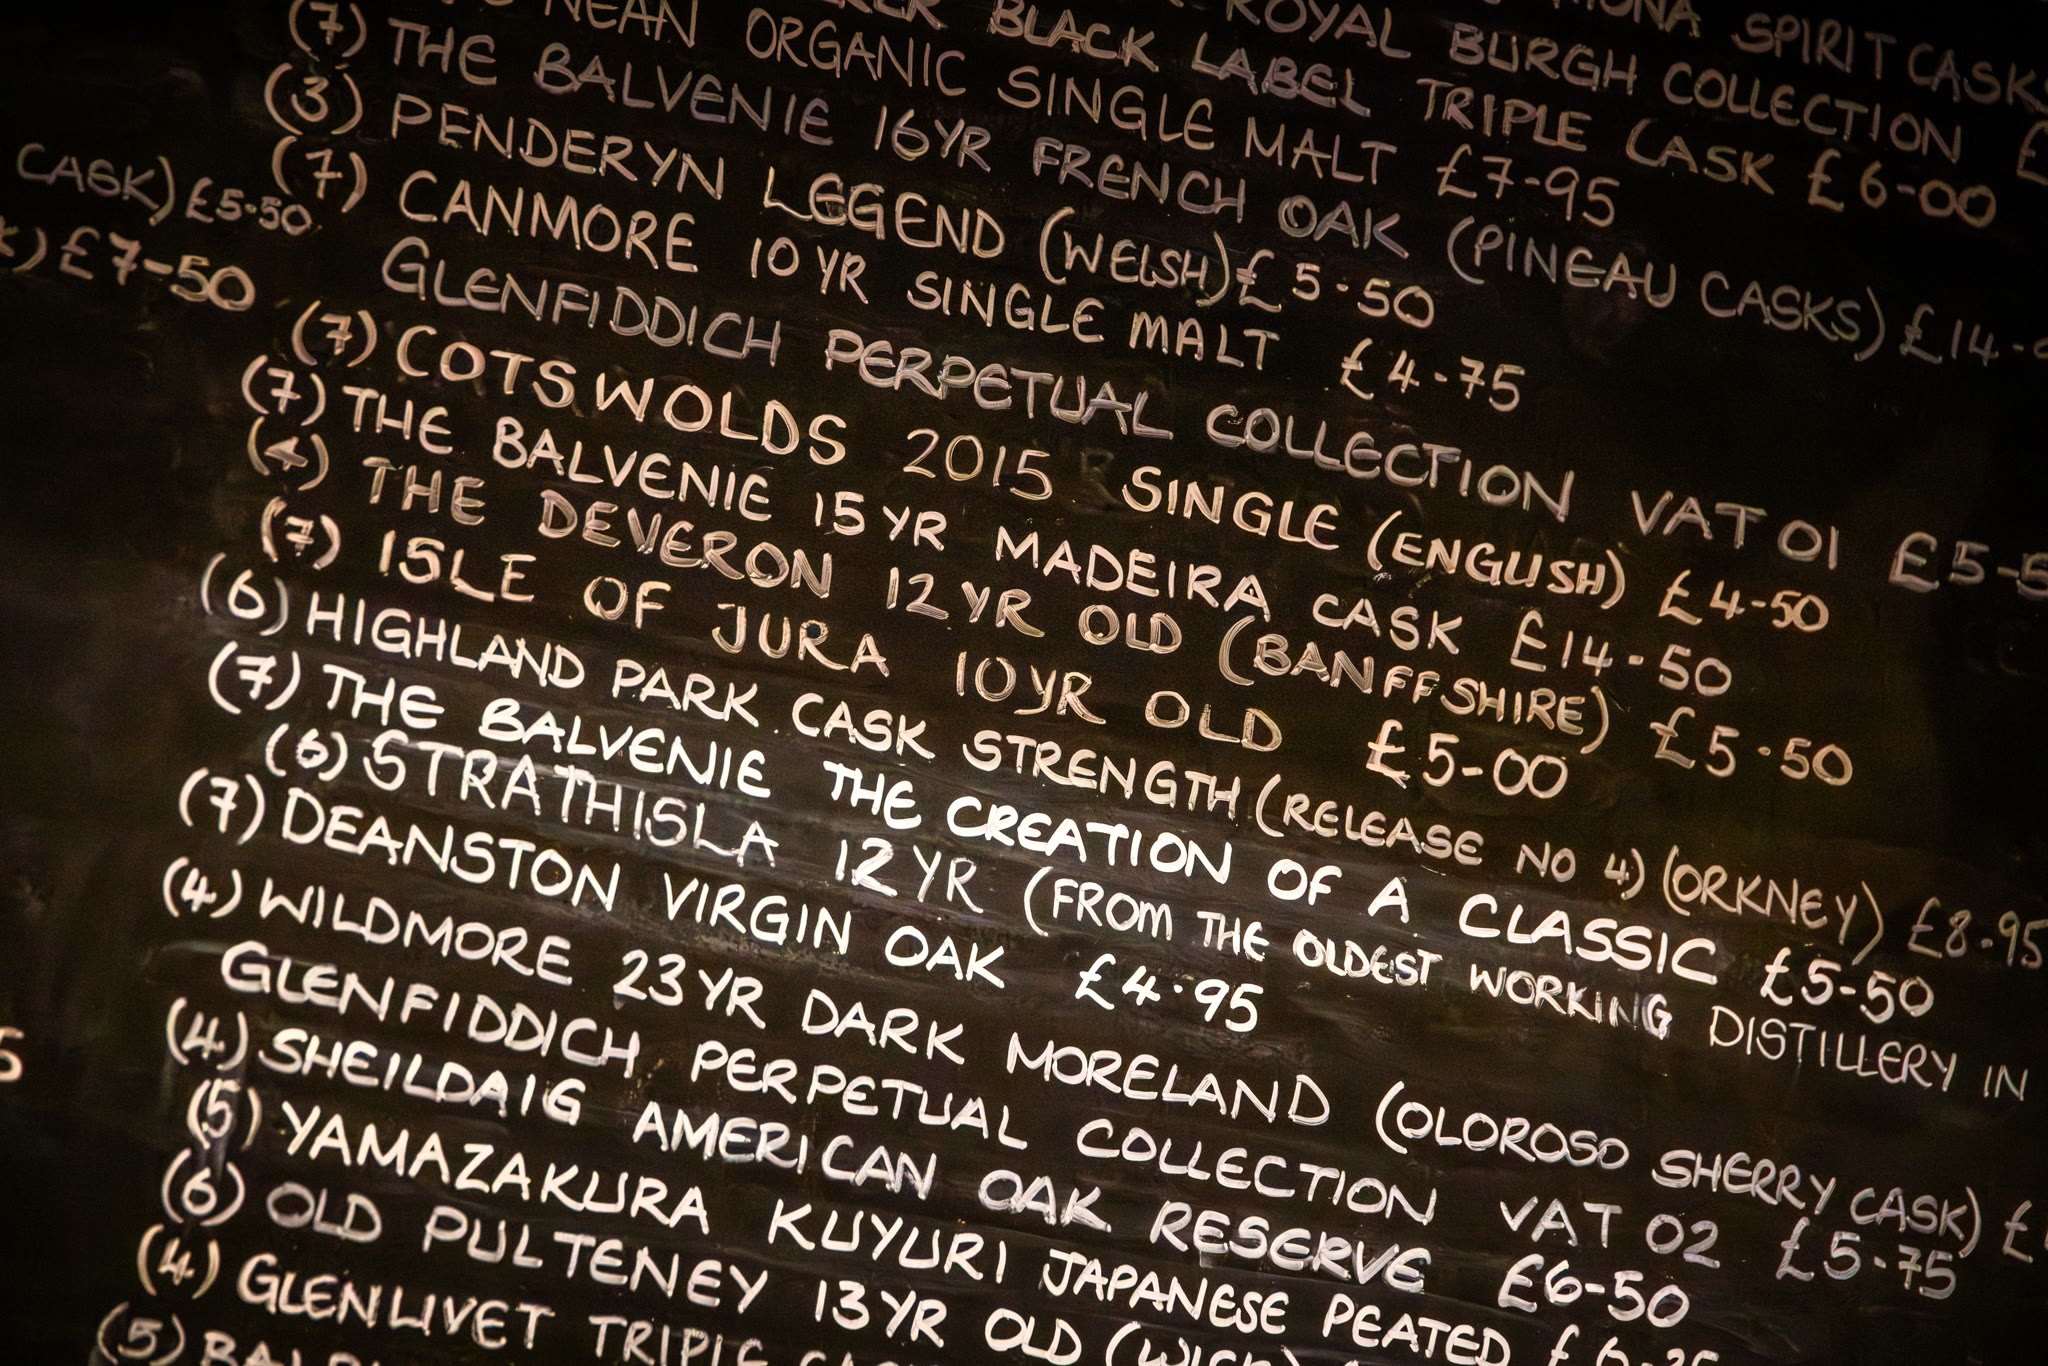 SPIRIT CASKS
ROYAL BURGH COLLECTION £
BLACK LABEL TRIPLE CASK £6-00
NEAN ORGANIC SINGLE MALT £7-95
(7) THE BALVENIE 16YR FRENCH OAK (PINEAU CASKS) £14-
(3) PENDERYN LEGEND (WELSH) £5-50
(7) CANMORE 10YR SINGLE MALT £4-75
GLENFIDDICH PERPETUAL COLLECTION VAT 01 £5-5
(7) COTSWOLDS 2015 SINGLE (ENGLISH) £4-50
(7) THE BALVENIE 15YR MADEIRA CASK £14-50
(4) THE DEVERON 12YR OLD (BANFFSHIRE) £5-50
(7) ISLE OF JURA 10YR OLD £5-00
(6) HIGHLAND PARK CASK STRENGTH (RELEASE NO 4) (ORKNEY) £8-95
(7) THE BALVENIE THE CREATION OF A CLASSIC £5-50
(6) STRATHISLA 12YR (FROM THE OLDEST WORKING DISTILLERY IN
(7) DEANSTON VIRGIN OAK £4-95
(4) WILDMORE 23YR DARK MORELAND (OLOROSO SHERRY CASK) £
GLENFIDDICH PERPETUAL COLLECTION VAT 02 £5-75
(4) SHEILDAIG AMERICAN OAK RESERVE £6-50
(5) YAMAZAKURA KUYURI JAPANESE PEATED
(6) OLD PULTENEY 13YR OLD
(4) GLENLIVET TRIPLE
(5)
CASK) £5-50
) £7-50
5